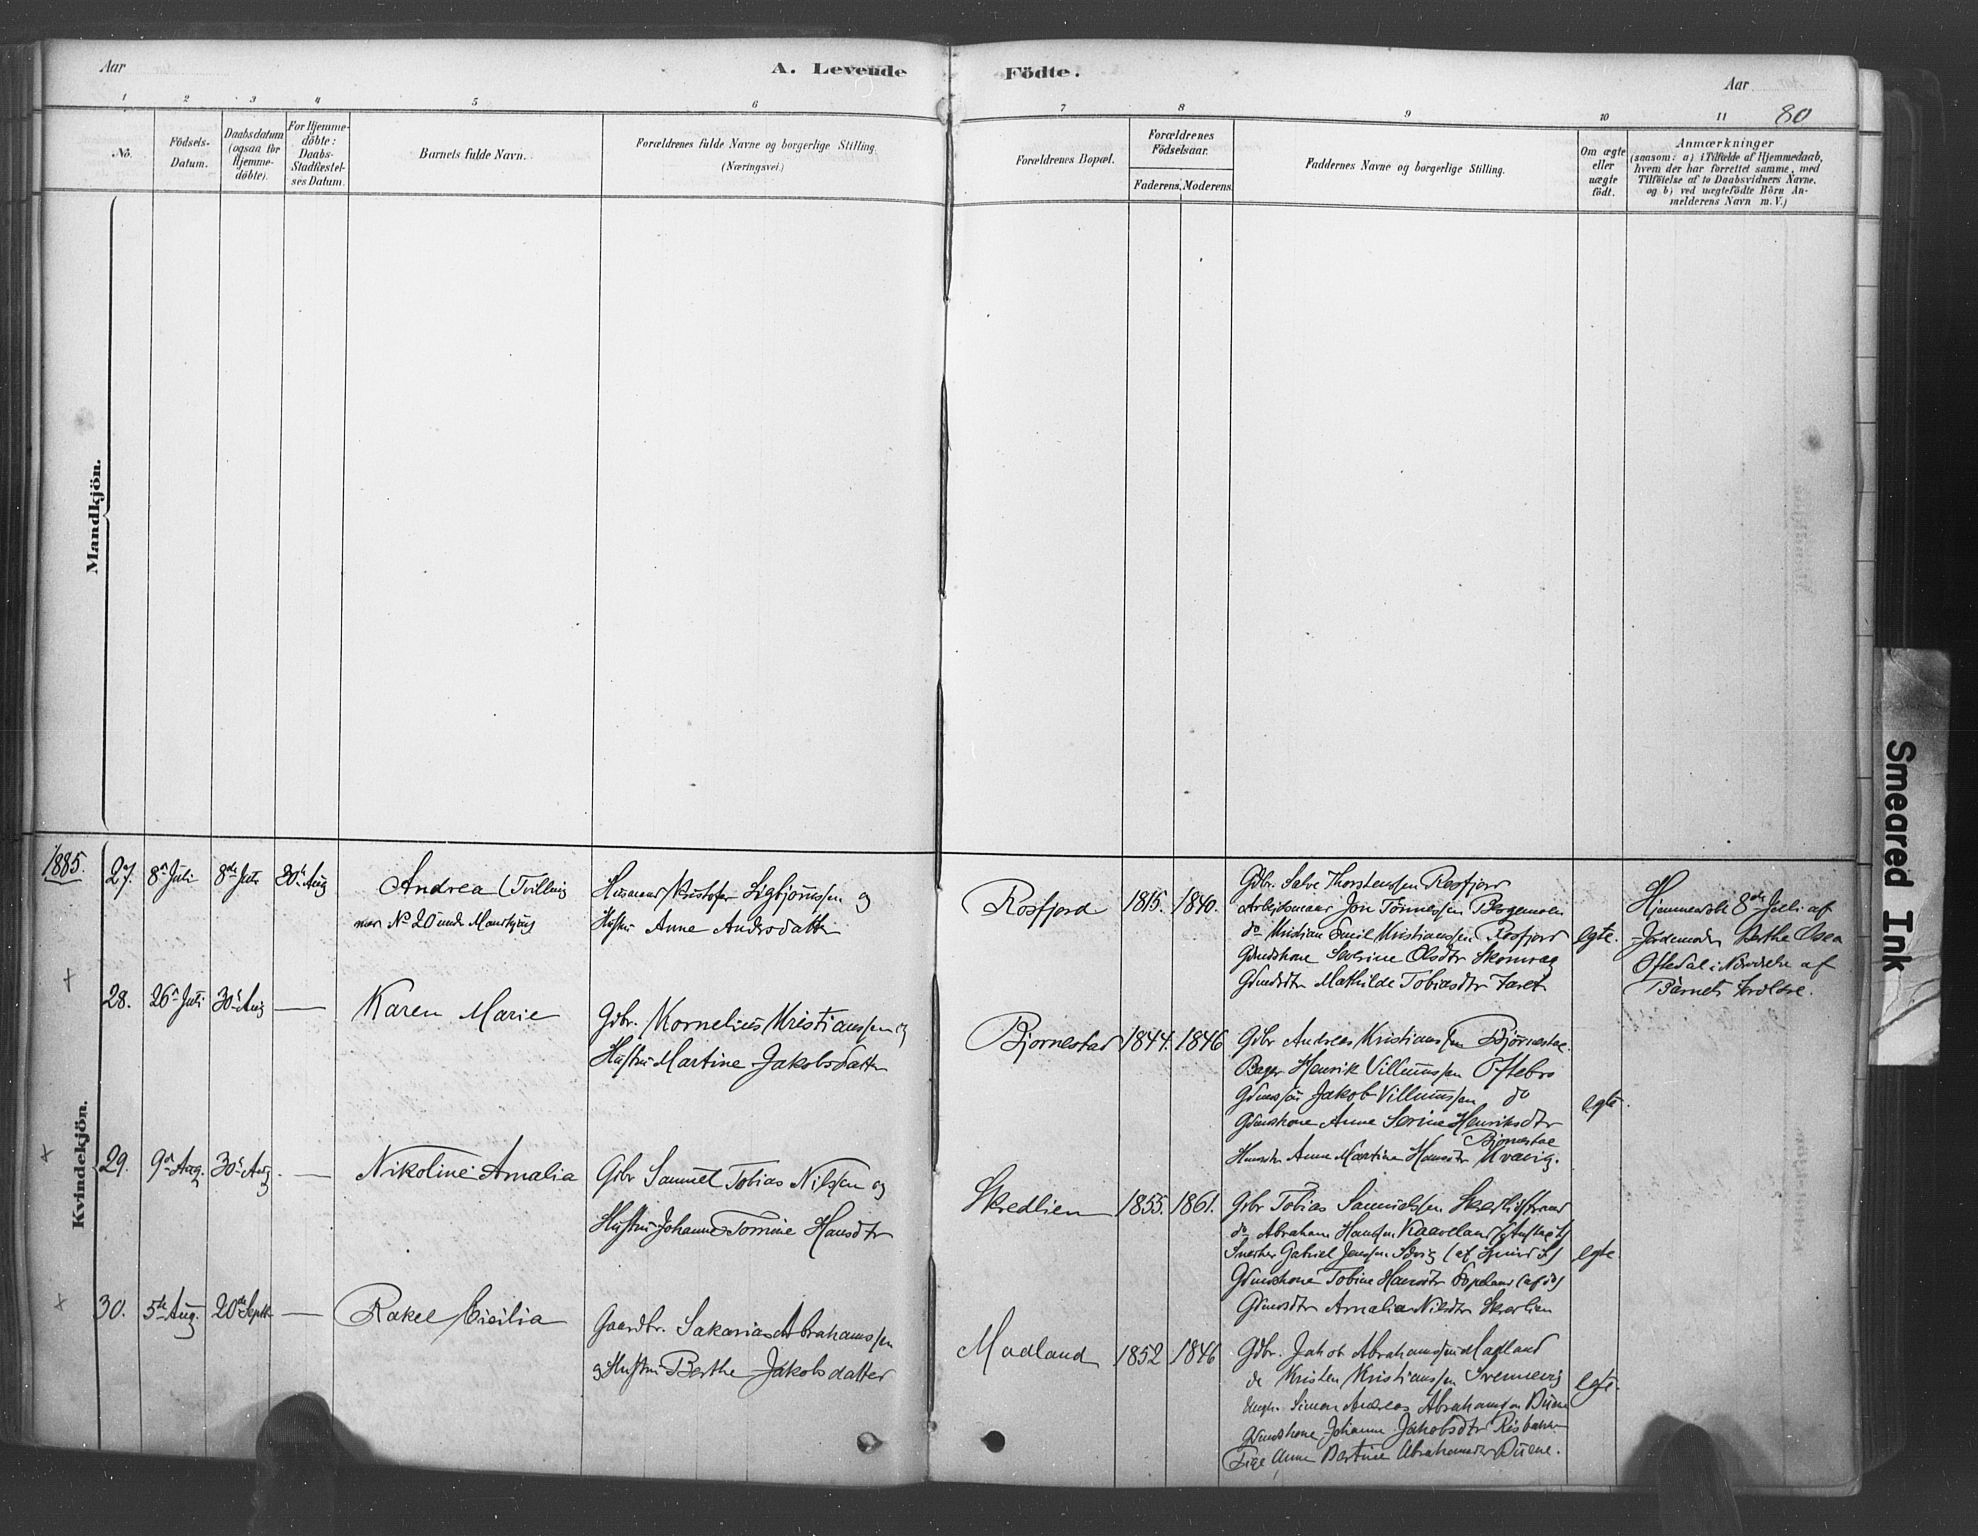 Aar
A. Levende
Födte.
Aar
80
1 2 3 4 5 6 7 8 9 10 11
No.
Födsels-
Datum.
Daabsdatum
(ogsaa for
Hjemme-
döbte).
For Hjemme-
döbte:
Daabs-
Stadfestel-
ses Datum.
Barnets fulde Navn.
Forældrenes fulde Navne og borgerlige Stilling.
(Næringsvei.)
Forældrenes Bopæl.
Forældrenes
Födselsaar.
Faderens. Moderens.
Faddernes Navne og borgerlige Stilling.
Om ægte
eller
uægte
födt.
Anmærkninger
(saasom: a) i Tilfælde af Hjemmedaab,
hvem der har forrettet samme, med
Tilföielse af to Daabsvidners Navne,
og b) ved uægtefödte Börn An-
melderens Navn m. V.)
Mandkjön.
Kvindekjön.
1885.
27. 8de Juli 8de Juli 30te Aug
Andrea (Tvilling
med No 20 under Mandkjøn
Husmand Kristofer Sigbjørnssen og
Hustru Anne Andersdatter
Rosfjord 1815. 1840.
Gdbr. Salve Thorstenssen Rosfjord
Arbeidsmand Jon Tønnessen Bergemoen
do Kristian Emil Kristianssen Rosfjord
Gdmdskone Severine Olsdtr Skomrag
Gdmdsdtr Mathilde Tobiasdtr Faret
egte.
Hjemmedøbt 8de Juli af
Jordemoder Berthe Osea
Oftedal i Nærværelse af
Barnets Forældre.
28. 26de Juli 30te Aug —
Karen Marie
Gdbr. Kornelius Kristianssen og
Hustru Martine Jakobsdatter
Bjørnestad 1844. 1846
Gdbr Andreas Kristianssen Bjørnestad.
Bager Henrik Villumssen Oftebro
Gdmdssøn Jakob Villumssen do
Gdmdskone Anne Serine Henriksdtr
Bjørnestad
Husmdtr Anne Martine Hansdtr Kvavig.
egte.
29. 9de Aug. 30te Aug. —
Nikoline Amalia
Gdbr Samuel Tobias Nilssen og
Hustru Johanne Tomine Hansdtr
Skredlien 1855. 1861.
Gdbr Tobias Samuelssen
do Abraham Hanssen Kaaveland
Snedker Gabriel Jenssen
Gdmdskone Tobine Hansdtr
Gdmdsdtr Amalia Nilsdtr Skredlien
egte
30. 5te Aug. 20de Septbr —
Rakel Cicilia
Gaardbr. Sakarias Abrahamssen
og Hustru Berthe Jakobsdatter
Madland 1852 1846
Gdbr. Jakob Abrahamssen Madland
do Kristen Kristianssen Svennevig
Ungk. Simon Andreas Abrahamssen Duene
Gdmdskone Johanne Jakobsdtr Risbakken
Pige Anne Bertine Abrahamsdtr Duene.
egte.
Smeared Ink